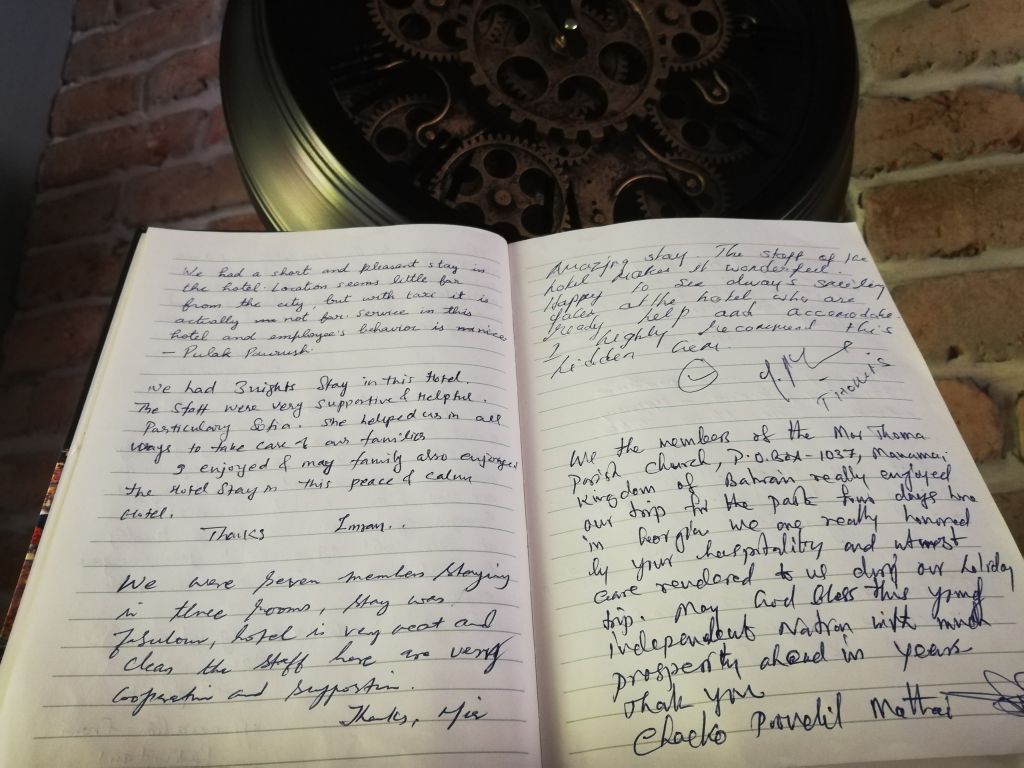 We had a short and pleasant stay in
the hotel. Location seems little far
from the city but with taxi it is
actually not far. Service in this
hotel and employee's behavior is
- Pulak
We had 3 nights Stay in this Hotel.
The Staff were very Supportive & Helpful.
Particulary Sofia. She helped us in all
ways to take care of our families
I enjoyed & may family also enjoyed
the Hotel Stay in this peace & calm
Hotel.
Thanks Imran..
We were Seven members Staying
in three rooms, Stay was
fabulour, hotel is very neat and
clean the Staff here are very
Cooperative and Supportive.
Thanks,
Amazing stay. The staff of
hotel makes it wonderful.
Happy to see always smiling
faces at the hotel who are
ready help and accomodate.
I highly recommend this
hidden Gem.
We the members of the Mar Thoma
Parish Church, P.O.BOX-1037, Manama,
Kingdom of Bahrain really enjoyed
our trip for the past four days here
in Georgia. We are really honored
by your hospitality and utmost
care rendered to us during our holiday
trip. May God bless this young
independent Nation with much
prosperity ahead in years
Thank you
Chacko Mathai